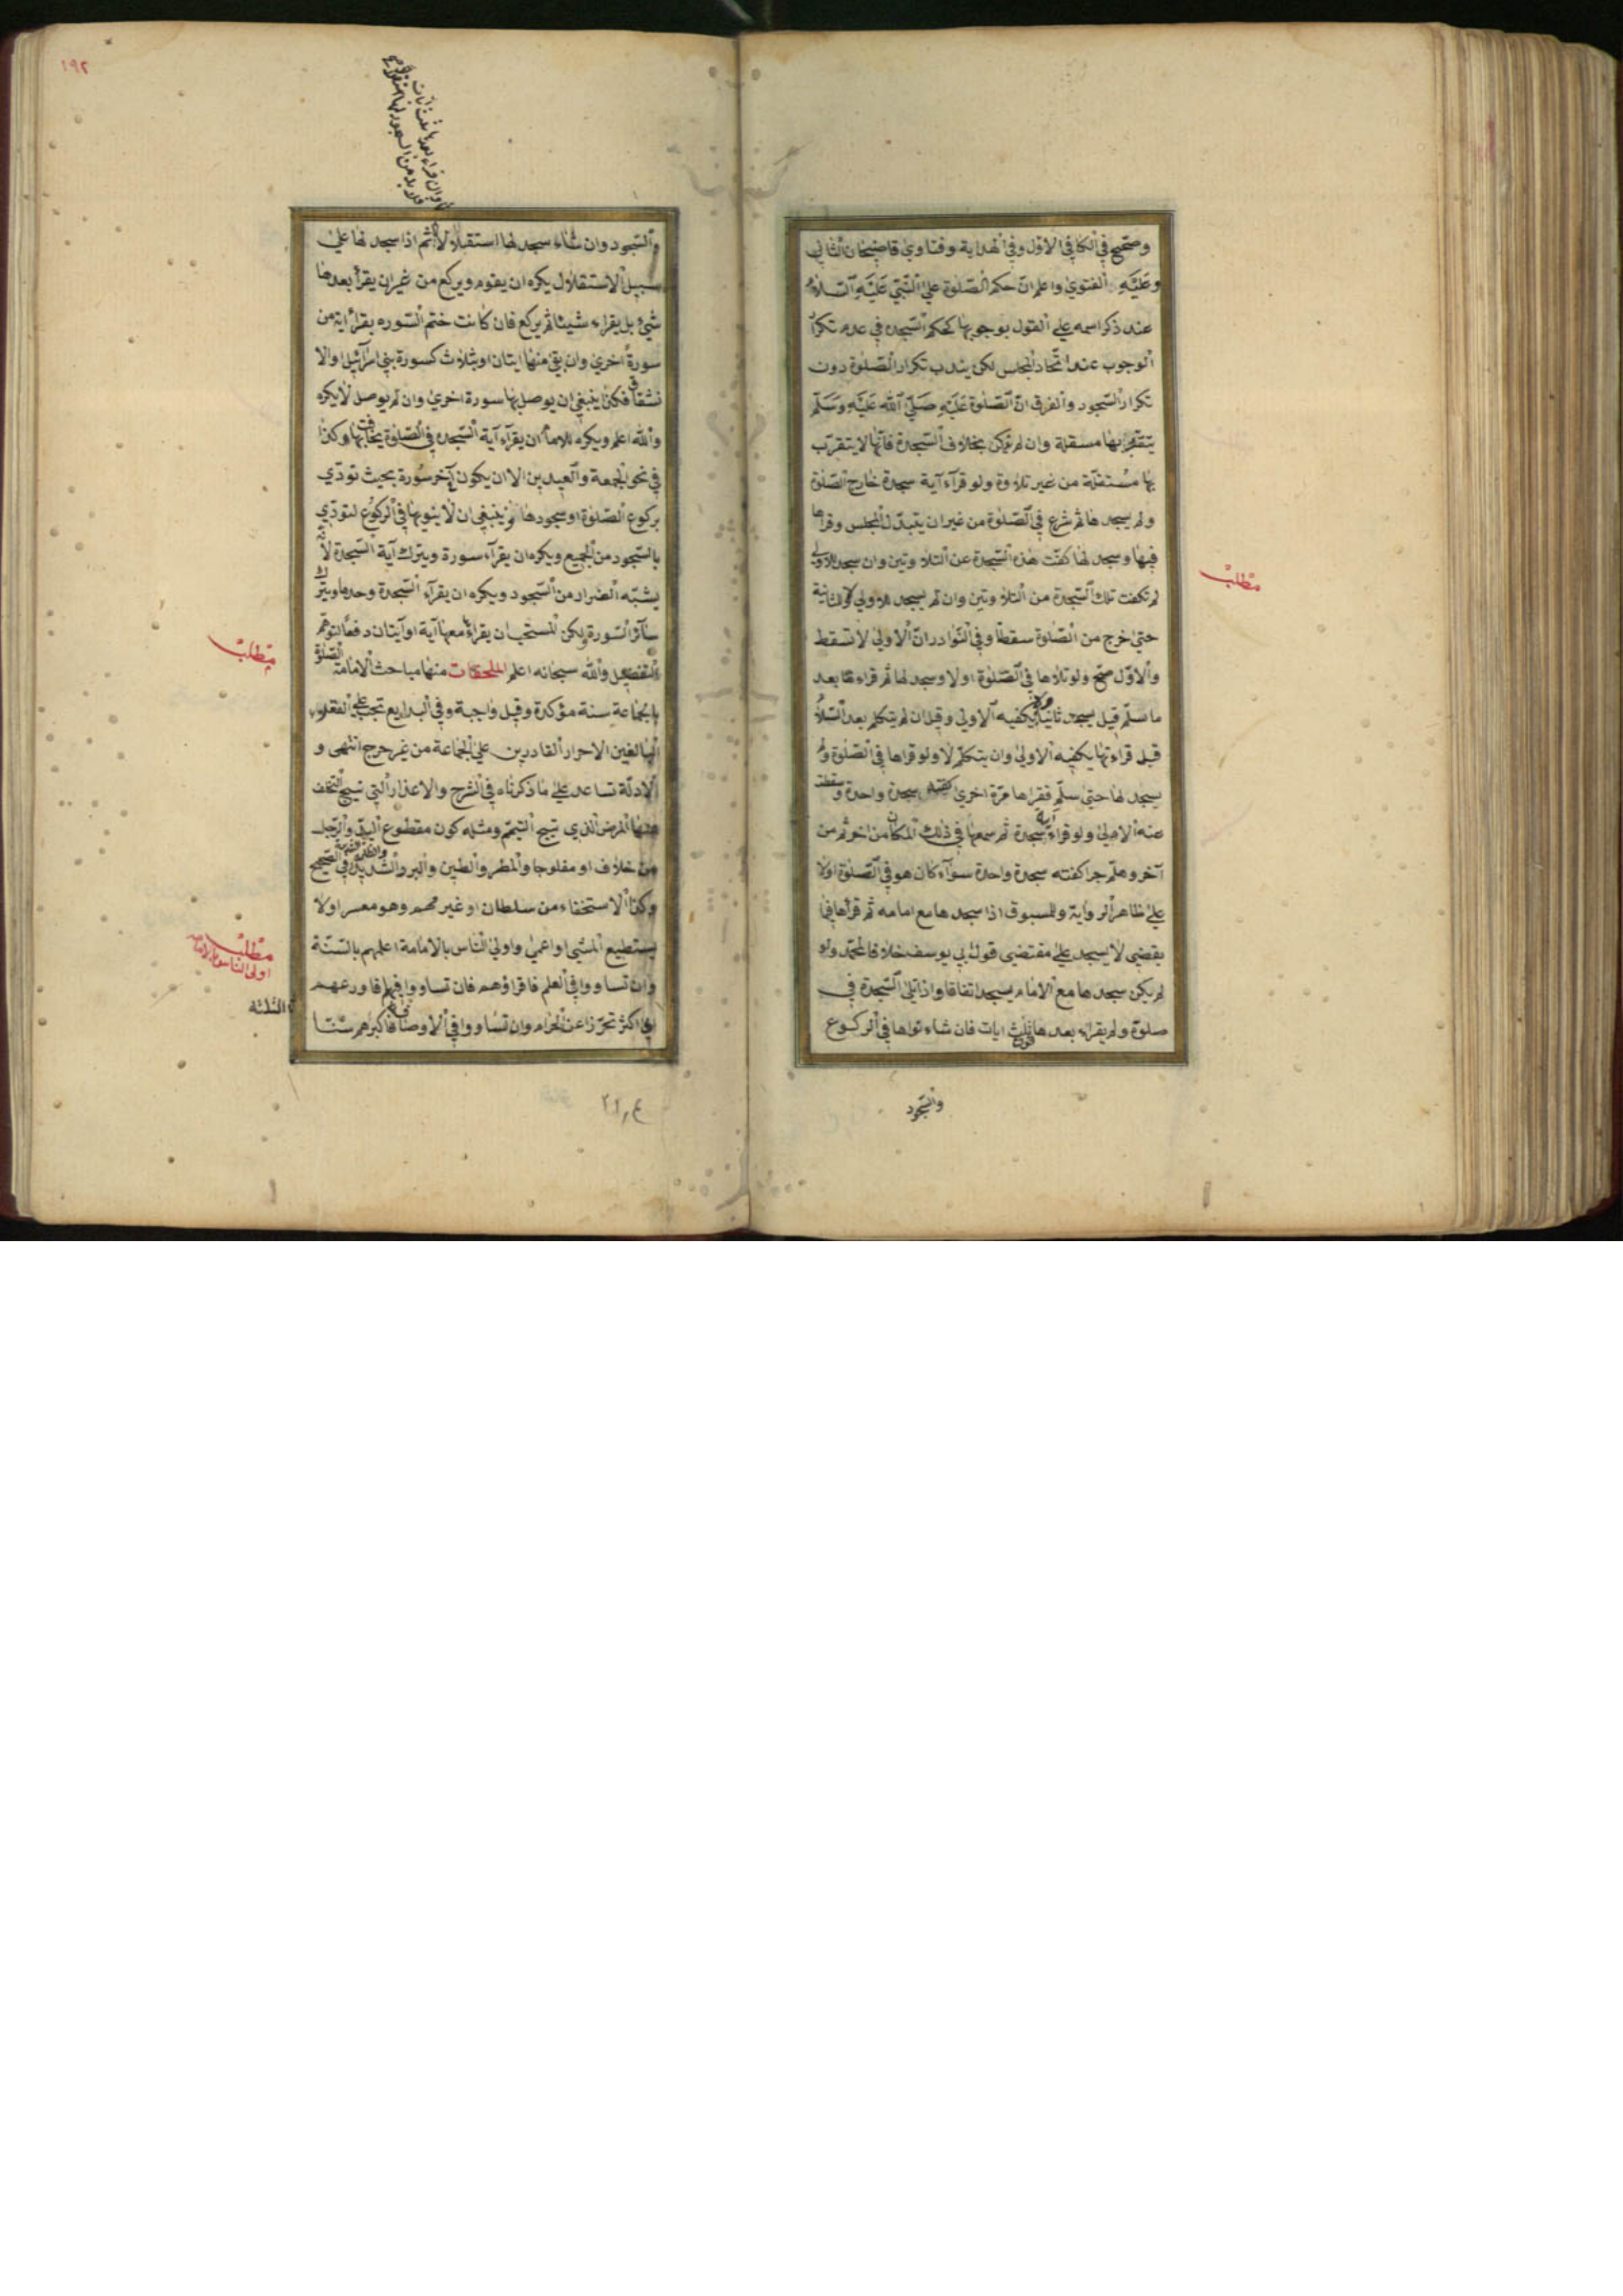 وصحح في الكافي الاول وفي الهداية وفتاوي قاضيخان الثاني
وعَلَيْهِ الفتوي واعلم انّ حكم الصّلوة علي النّبيّ عَلَيْهِ السّلامُ
عند ذكر اسمه علي القول بوجوبها كحكم السّجده في عدم تكرار
الوجوب عند اتّحاد المجلس لكن يندب تكرار الصّلوة دون
تكرار السّجود والفرق انّ الصّلوة عَلَيْهِ صَلَّي الله عَلَيْهِ وَسَلَّم
يتقرّب بها مستقلة وان لم تكن بخلاف السّجدة فانّها لا يتقرّب
بها مستقلّة من غير تلاوة ولو قرآء آية سجدة خارج الصّلوة
ولم يسجد ها ثم شرع في الصّلوة من غير ان يتبدّل المجلس وقراها
فيها وسجد لها كفت هذه السّجدة عن التلاوتين وان سجد للاولي
لم تكفت تلك السّجدة من التلاوتين وان لم يسجد للاولي ولا للثانية
حتي خرج من الصّلوة سقطتا وفي النّوادر انّ الاولي لا تسقط
والاوّل صحّ ولو تلاها في الصّلوة اولا وسجد لها ثم قراءها بعد
ما سلّم قيل يسجد ثانيا ولا يكفيه الاولي وقيل ان لم يتكلم بعد السّلام
قبل قراءتها يكفيه الاولي وان يتكلّم لا ولو قراها في الصّلوة ولم
يسجد لها حتي سلّم فقراها مرّة اخري كفته سجدة واحدة وسقطت
عنه الاولي ولو قراء آية سجدة ثم سمعها في ذلك المكان من اخر ثم من
آخر وهلّم جرا كفته سجدة واحدة سوآء كان هو في الصّلوة اولا
علي ظاهر الرواية والمسبوق اذا سجد ها مع امامه ثم قرأها فيما
يقضي لا يسجد علي مقتضي قول ابي يوسف خلافا لمحمّد ولو
لم يكن سجدها مع الامام يسجد اتفاقا واذا تلي السّجدة في
صلوة ولم يقراء بعدها فوق ثلث ايات فان شاء نواها في الركوع
والسّجود
مطلب
١٩٢
وان قراء بعدها ثلث ايات
فلا بد من السجود لها
والسّجود وان شاء سجد لها استقلالا ثم اذا سجد لها علي
سبيل الاستقلال يكره ان يقوم ويركع من غير ان يقرأ بعدها
شئ بل يقراء شيئا ثم يركع فان كانت ختم السّوره يقرأ اية من
سورة اخري وان بقي منها ايتان او ثلاث كسورة بني اسرآئيل والا
نشقاق فكذا ينبغي ان يوصل بها سورة اخري وان لم يوصل لا يكره
والله اعلم ويكره للامام ان يقرآء آية السّجده في الصّلوة يخافت بها وكذا
في نحو الجمعة والعيدين الا ان يكون آخر سورة بحيث تودّي
بركوع الصّلوة او سجودها وينبغي ان لا ينويها في الركوع لتودّي
بالسّجود من الجميع ويكره ان يقرآء سورة ويترك آية السّجدة لانّه
يشبّه الضرار من السّجود ويكره ان يقرآء السّجدة وحدها ويترك
سآئر السّورة ولكن المستحب ان يقراء معها آية او آيتان دفعًا لتوهّم
التفضيل والله سبحانه اعلم الملحقات منها مباحث الامامة الصّلوة
بالجماعة سنة مؤكدة وقيل واجبة وفي البدايع تجب علي العقلاء
البالغين الاحرار القادرين علي الجماعة من غير حرج انتهي و
الادلّة تساعد علي ما ذكرناه في الشرح والاعذار التي تبيح التخلف
منها المرض الذي تبيح التيمّم ومثله كون مقطوع اليد والرّجل
من خلاف او مفلوجا والمطر والطين والبرد الشديد في الصّحيح
وكذا الاستخفاء من سلطان او غير مهم وهو معسر اولا
يستطيع المشي او اعمي واولي الناس بالامامة اعلمهم بالسّنّة
وان تساووا في العلم فاقراؤهم فان تساووا فيهما فاورعهم
اي اكثر تحرّزا عن الحرام وان تساووا في الاوصاف فاكبرهم سنّا
مطلب
مطلب
اولي الناس بالامامة
الثلثة